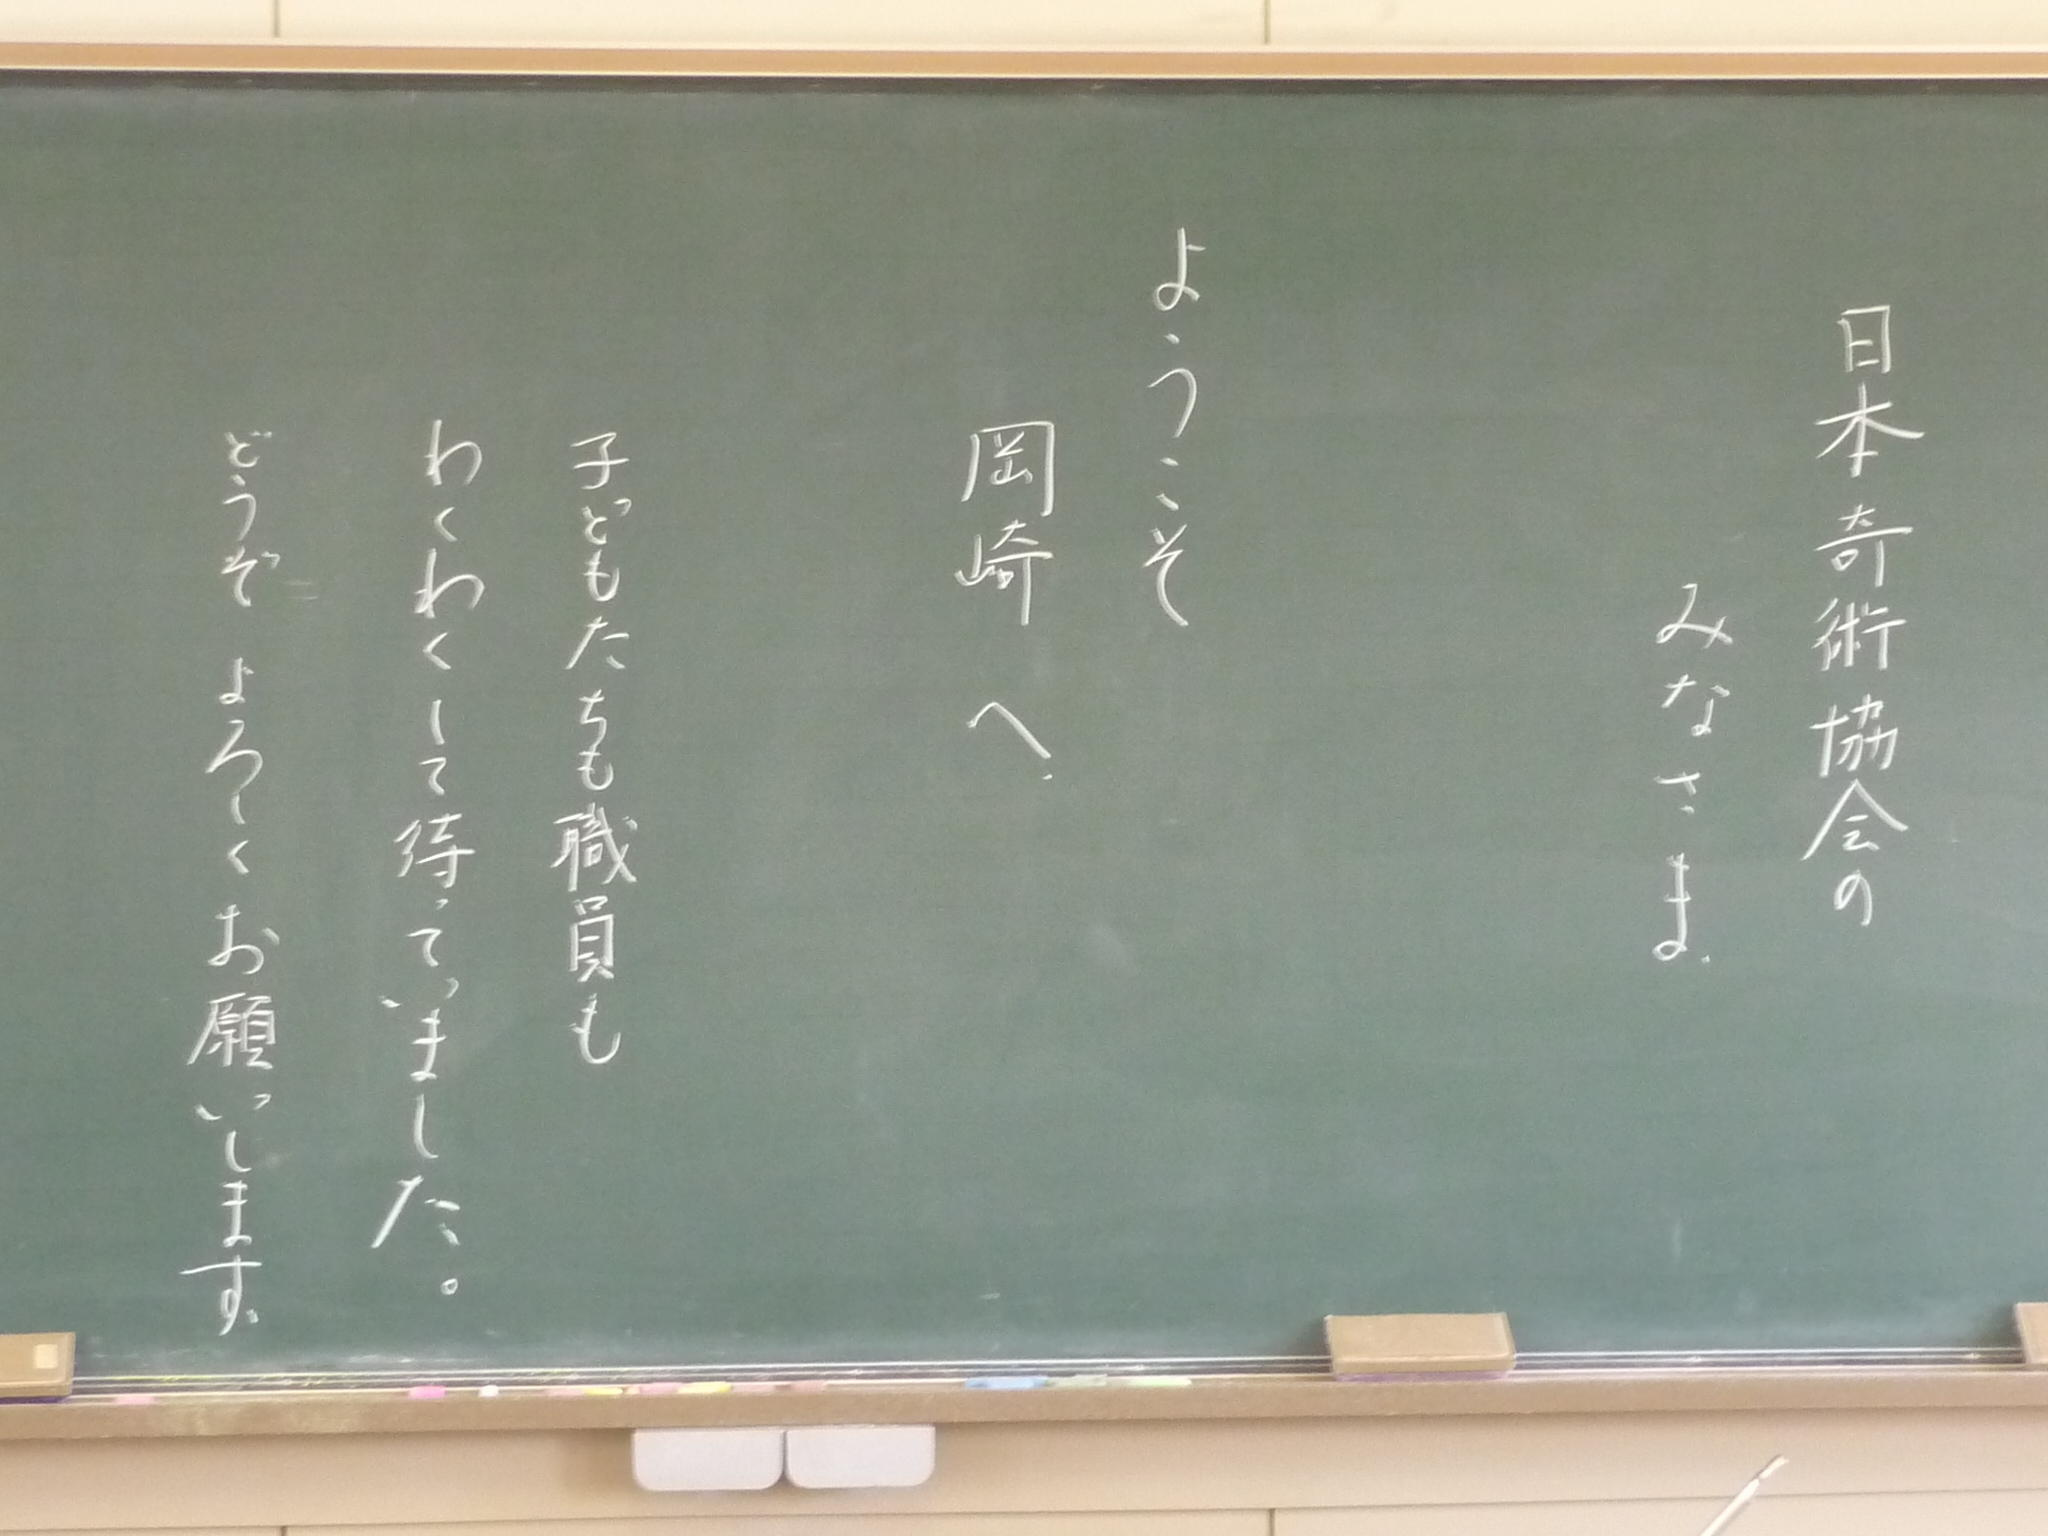 日本奇術協会の
みなさま
ようこそ
岡崎へ
子どもたちも職員も
わくわくして待っていました。
どうぞ よろしくお願いします